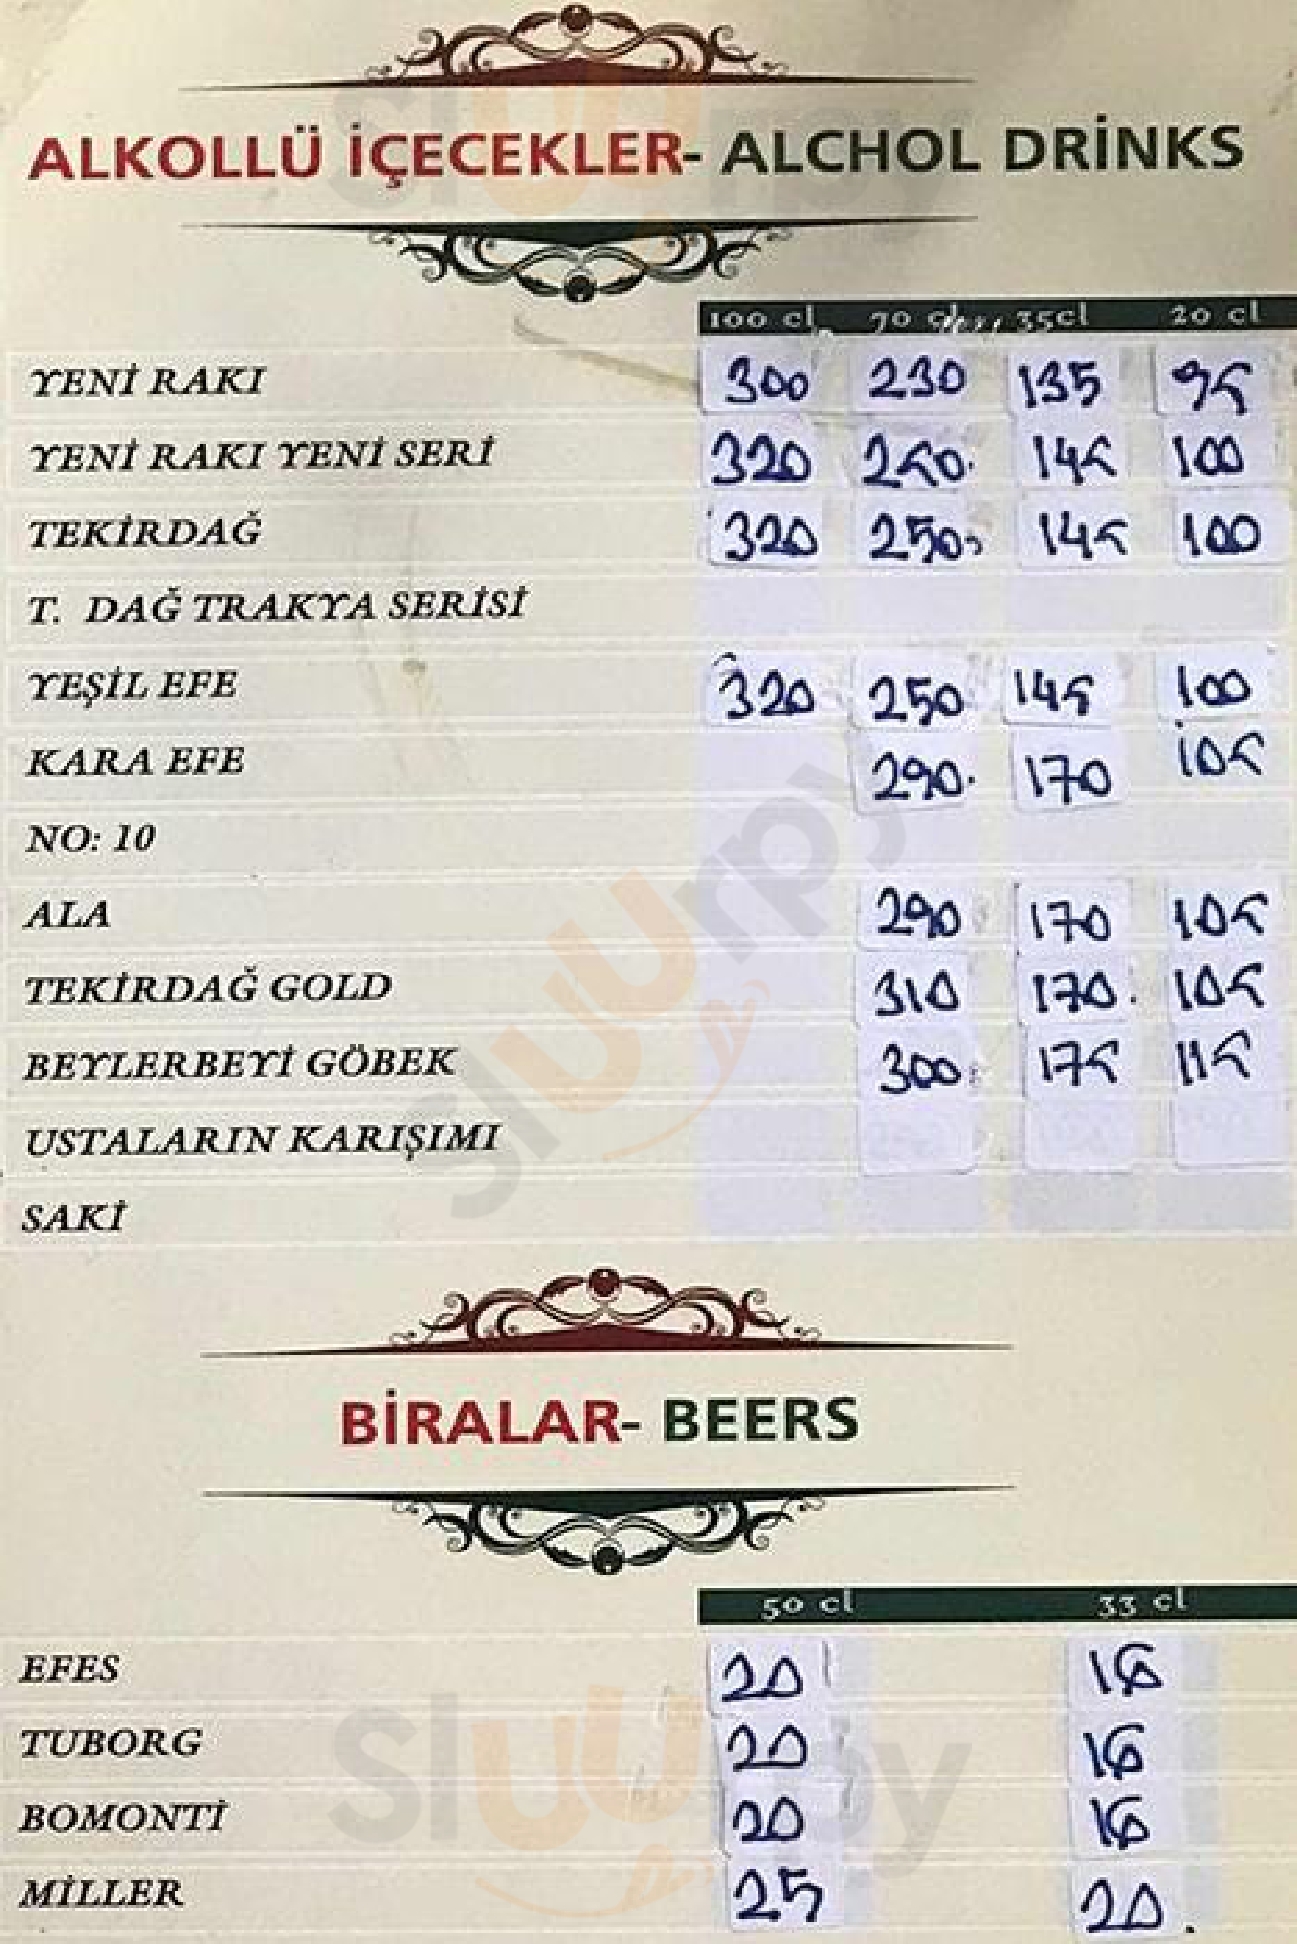 ALKOLLÜ İÇECEKLER- ALCHOL DRİNKS
100 cl 70 cl 35cl 20 cl
YENİ RAKI 300 230 135 95
YENİ RAKI YENİ SERİ 320 250 145 100
TEKİRDAĞ 320 250 145 100
T. DAĞ TRAKYA SERİSİ
YEŞİL EFE 320 250 145 100
KARA EFE 290 170 105
NO: 10
ALA 290 170 105
TEKİRDAĞ GOLD 310 170 105
BEYLERBEYİ GÖBEK 300 175 115
USTALARIN KARIŞIMI
SAKİ
BİRALAR- BEERS
50 cl 33 cl
EFES 20 16
TUBORG 20 16
BOMONTİ 20 16
MİLLER 25 20
sluurpy
sluurpy
sluurpy